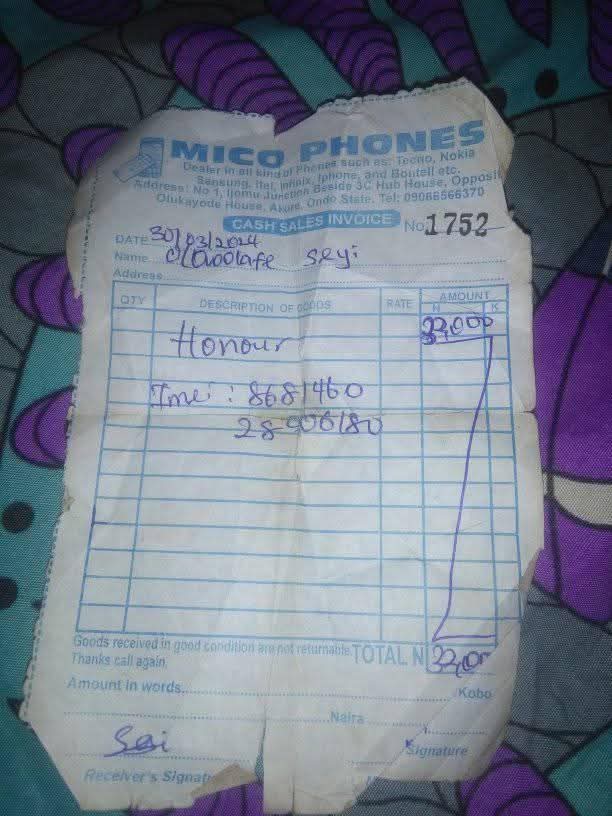 MICO PHONES
Dealer in all kind of Phones such as: Tecno, Nokia
Sensung, Itel, Infinix, Iphone, and Bontell etc.
Address: No 1, Ijomu Junction Beside 3C Hub House, Opposit
Olukayode House, Akure, Ondo State. Tel: 09066566370
CASH SALES INVOICE No 1752
DATE 30/03/2024
Name Oluwolafe Seyi
Address
QTY DESCRIPTION OF GOODS RATE AMOUNT
N K
Honour 32,000
Imei: 8681460
28906180
Goods received in good condition are not returnable.
Thanks call again.
TOTAL N 32,00
Amount in words Kobo
Naira
Signature
Receiver's Signat